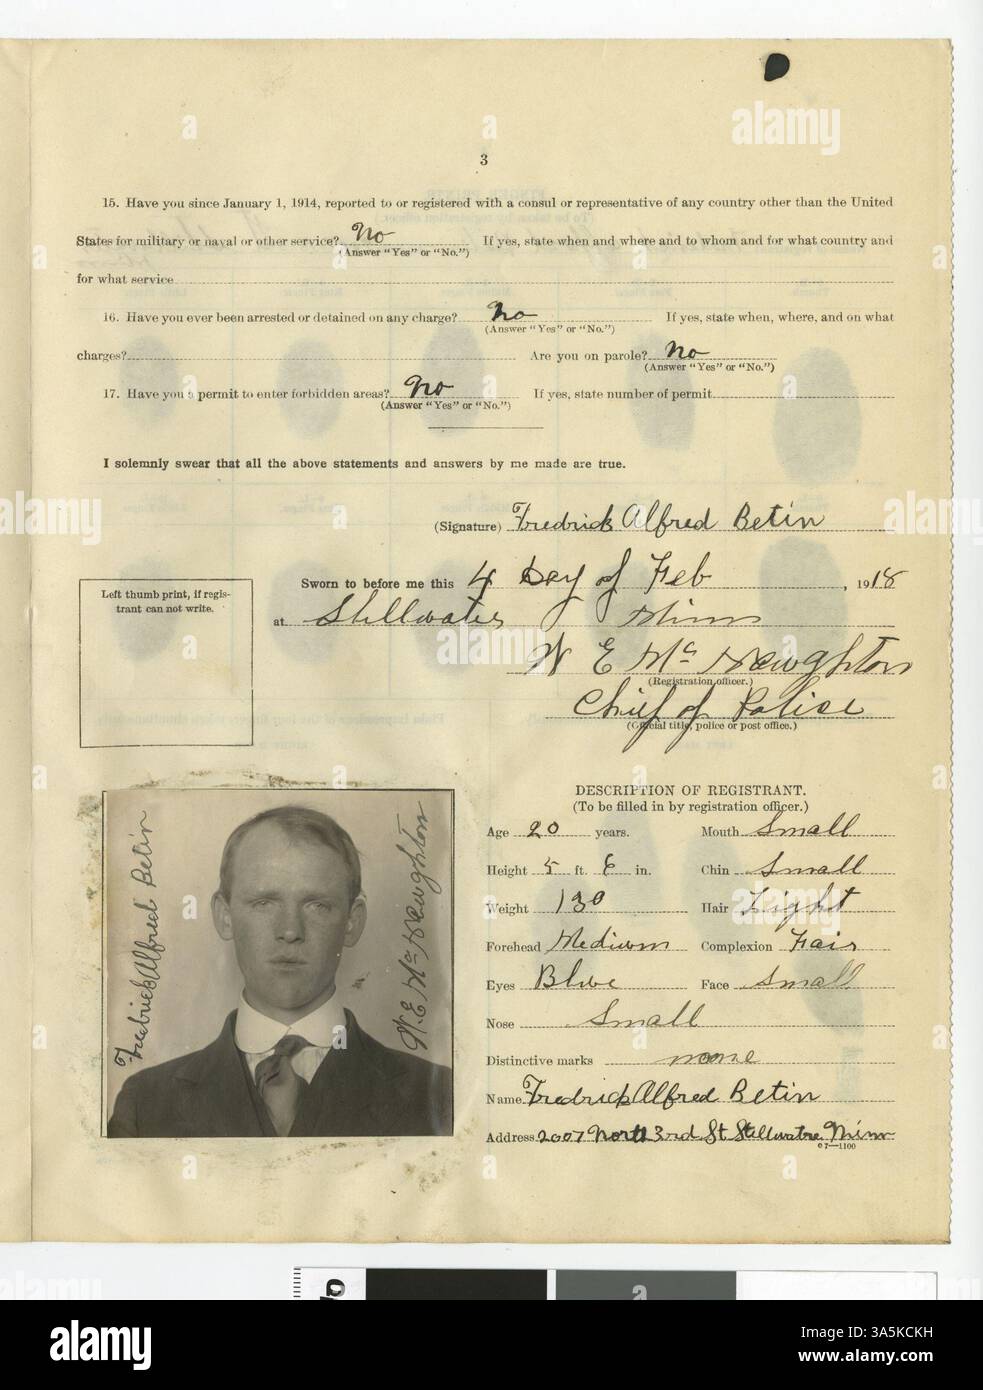 3
15. Have you since January 1, 1914, reported to or registered with a consul or representative of any country other than the United
States for military or naval or other service? No If yes, state when and where and to whom and for what country and
(Answer "Yes" or "No.")
for what service
16. Have you ever been arrested or detained on any charge? No If yes, state when, where, and on what
(Answer "Yes" or "No.")
charges? Are you on parole? No
(Answer "Yes" or "No.")
17. Have you a permit to enter forbidden areas? No If yes, state number of permit
(Answer "Yes" or "No.")
I solemnly swear that all the above statements and answers by me made are true.
(Signature) Fredrick Alfred Betin
Sworn to before me this 4 Day of Feb, 1918
at Stillwater Minn
W E McNaughton
(Registration officer.)
Chief of Police
(Official title, police or post office.)
Left thumb print, if regis-
trant can not write.
Fredrick Alfred Betin
W. E McNaughton
DESCRIPTION OF REGISTRANT.
(To be filled in by registration officer.)
Age 20 years. Mouth Small
Height 5 ft. 6 in. Chin Small
Weight 130 Hair Light
Forehead Medium Complexion Fair
Eyes Blue Face Small
Nose Small
Distinctive marks none
Name Fredrick Alfred Betin
Address 2007 North 3rd St Stillwatre Minn
c7—1100
alamy
Image ID: 3A5KCKH
www.alamy.com